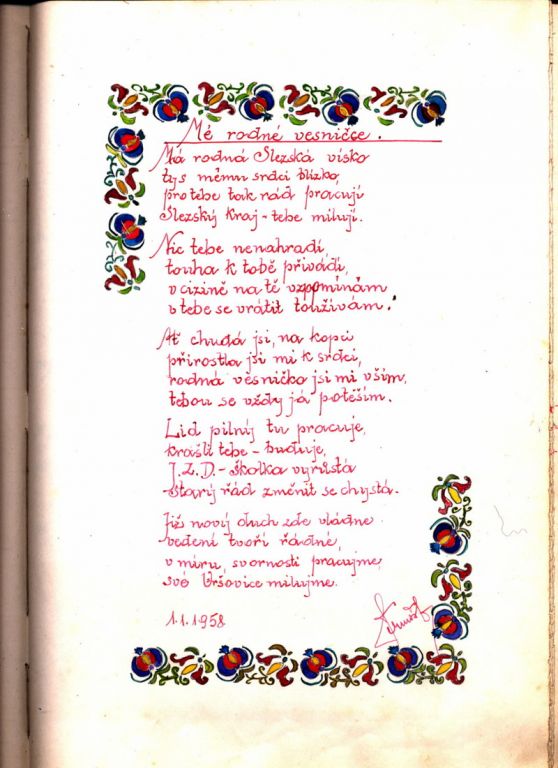 Mé rodné vesničce.
Má rodná Slezská vísko
tys mému srdci blízko,
pro tebe tak rád pracuji
Slezský kraj - tebe miluji.
Nic tebe nenahradí,
touha k tobě přivádí,
v cizině na tě vzpomínám
v tebe se vrátit toužívám.
Ať chudá jsi, na kopci
přirostla jsi mi k srdci,
rodná věsničko jsi mi vším,
tebou se vždy já potěším.
Lid pilný tu pracuje,
krášlí tebe - buduje,
J.Z.D. - školka vyrůstá
starý řád změnit se chystá.
Již nový duch zde vládne
vedení tvoří řádné,
v míru, svornosti pracujme
své Vršovice milujme.
1.1.1958